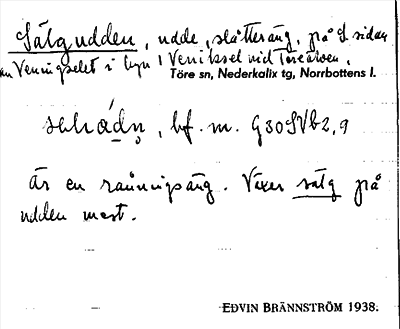 Sälgudden, udde, slåtteräng, på S sidan
av Veningselet i byn Veniksel vid Töreälven,
Töre sn, Nederkalix tg, Norrbottens l.
bf. m. G30SVb2,9
Är en raningsäng. Växer sälg på
udden mest.
EDVIN BRÄNNSTRÖM 1938.